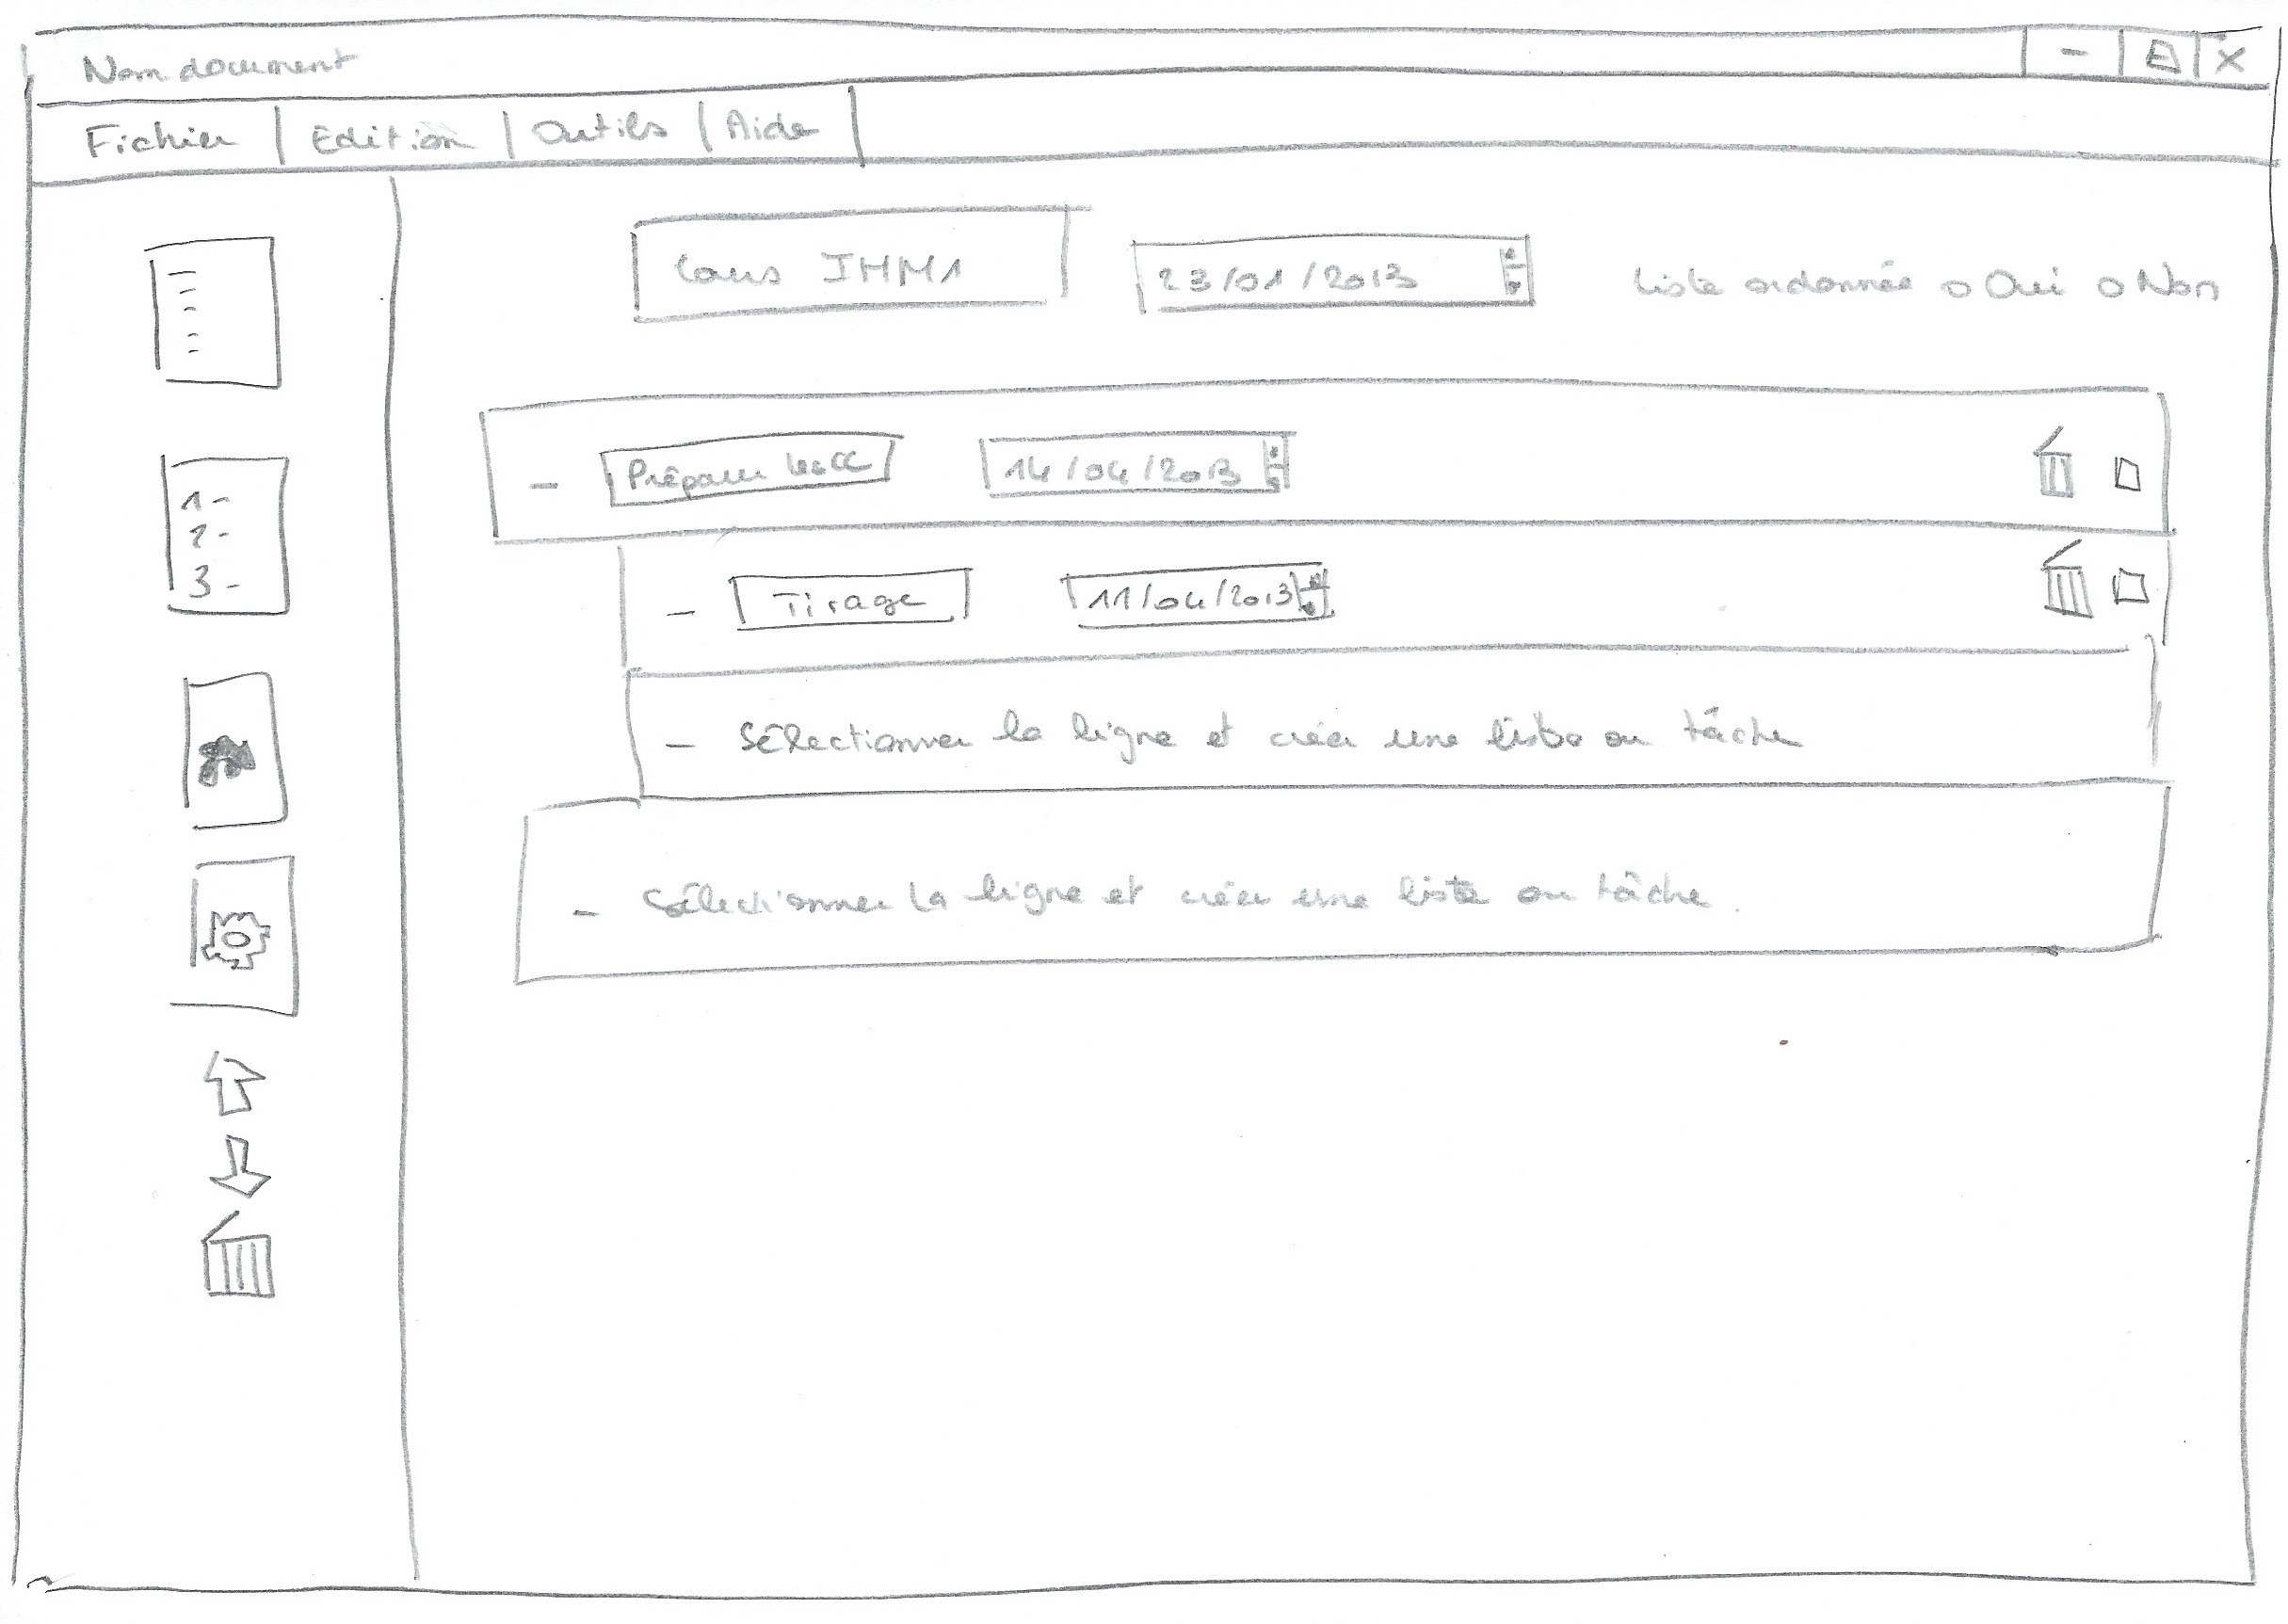 Nom document
Fichier Edition Outils Aide
Cours IHM1 23/01/2013 Liste ordonnée o Oui o Non
1-
2-
3-
- Préparer 14/04/2013
- Tirage 11/04/2013
- Sélectionner la ligne et créer une liste ou tâche
- Sélectionner la ligne et créer une liste ou tâche.